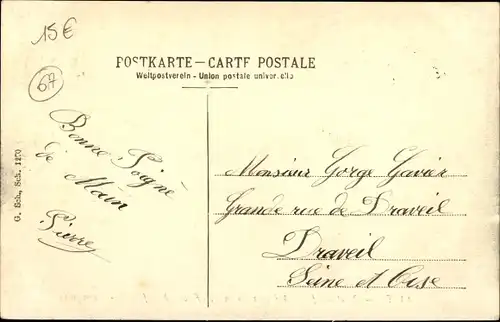 15€
67
POSTKARTE — CARTE POSTALE
Weltpostverein - Union postale univer.elle
Bonne Poigné
de Main
Pierre
G. Sch., Sch. 1270
Monsieur Gorge Gavier
Grande rue de Draveil
Draveil
Seine et Oise